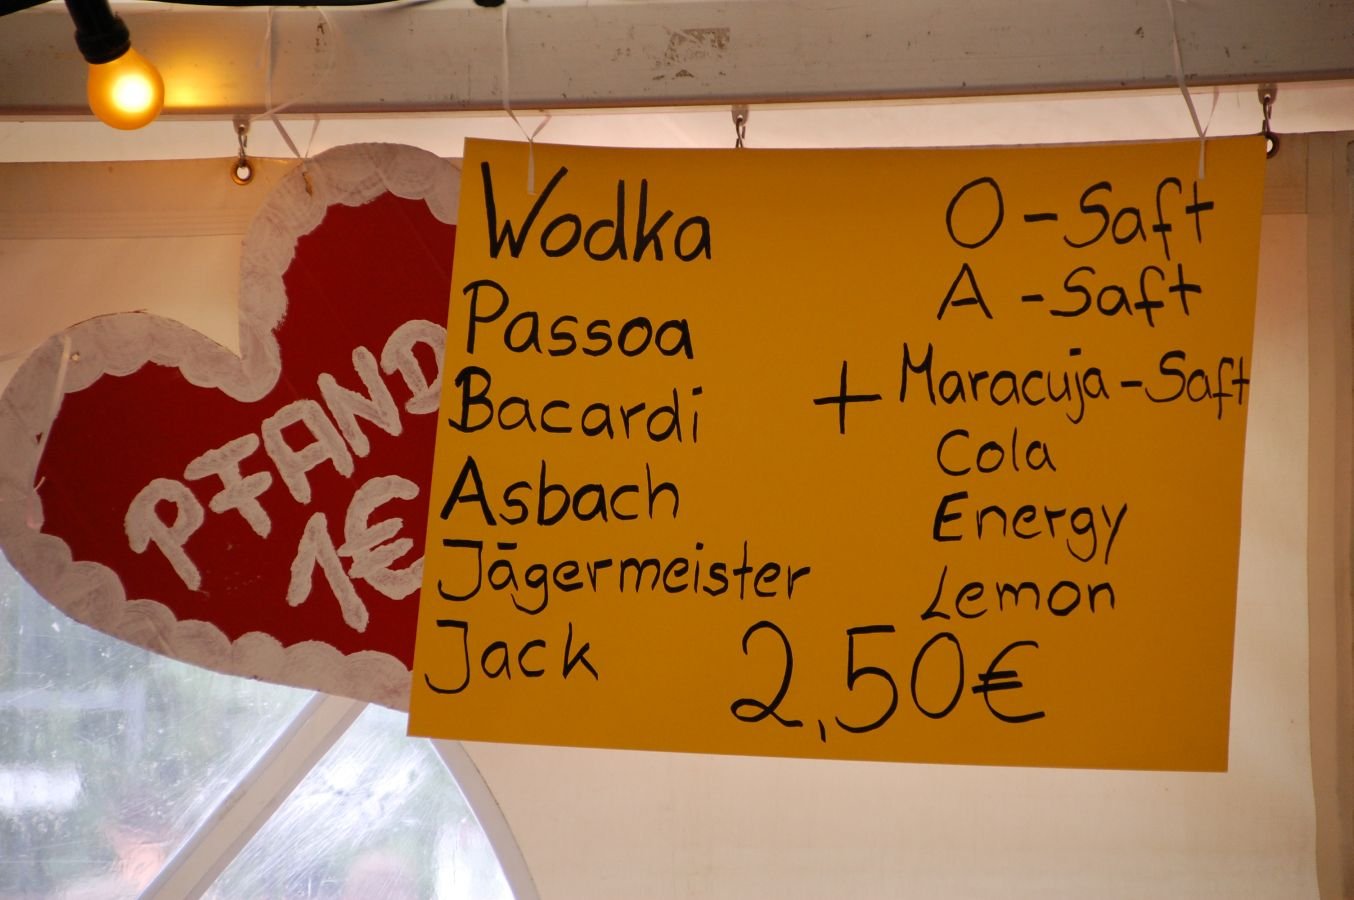 PFAND
1€
Wodka
Passoa
Bacardi
Asbach
Jägermeister
Jack
+
O-Saft
A-Saft
Maracuja-Saft
Cola
Energy
Lemon
2,50€